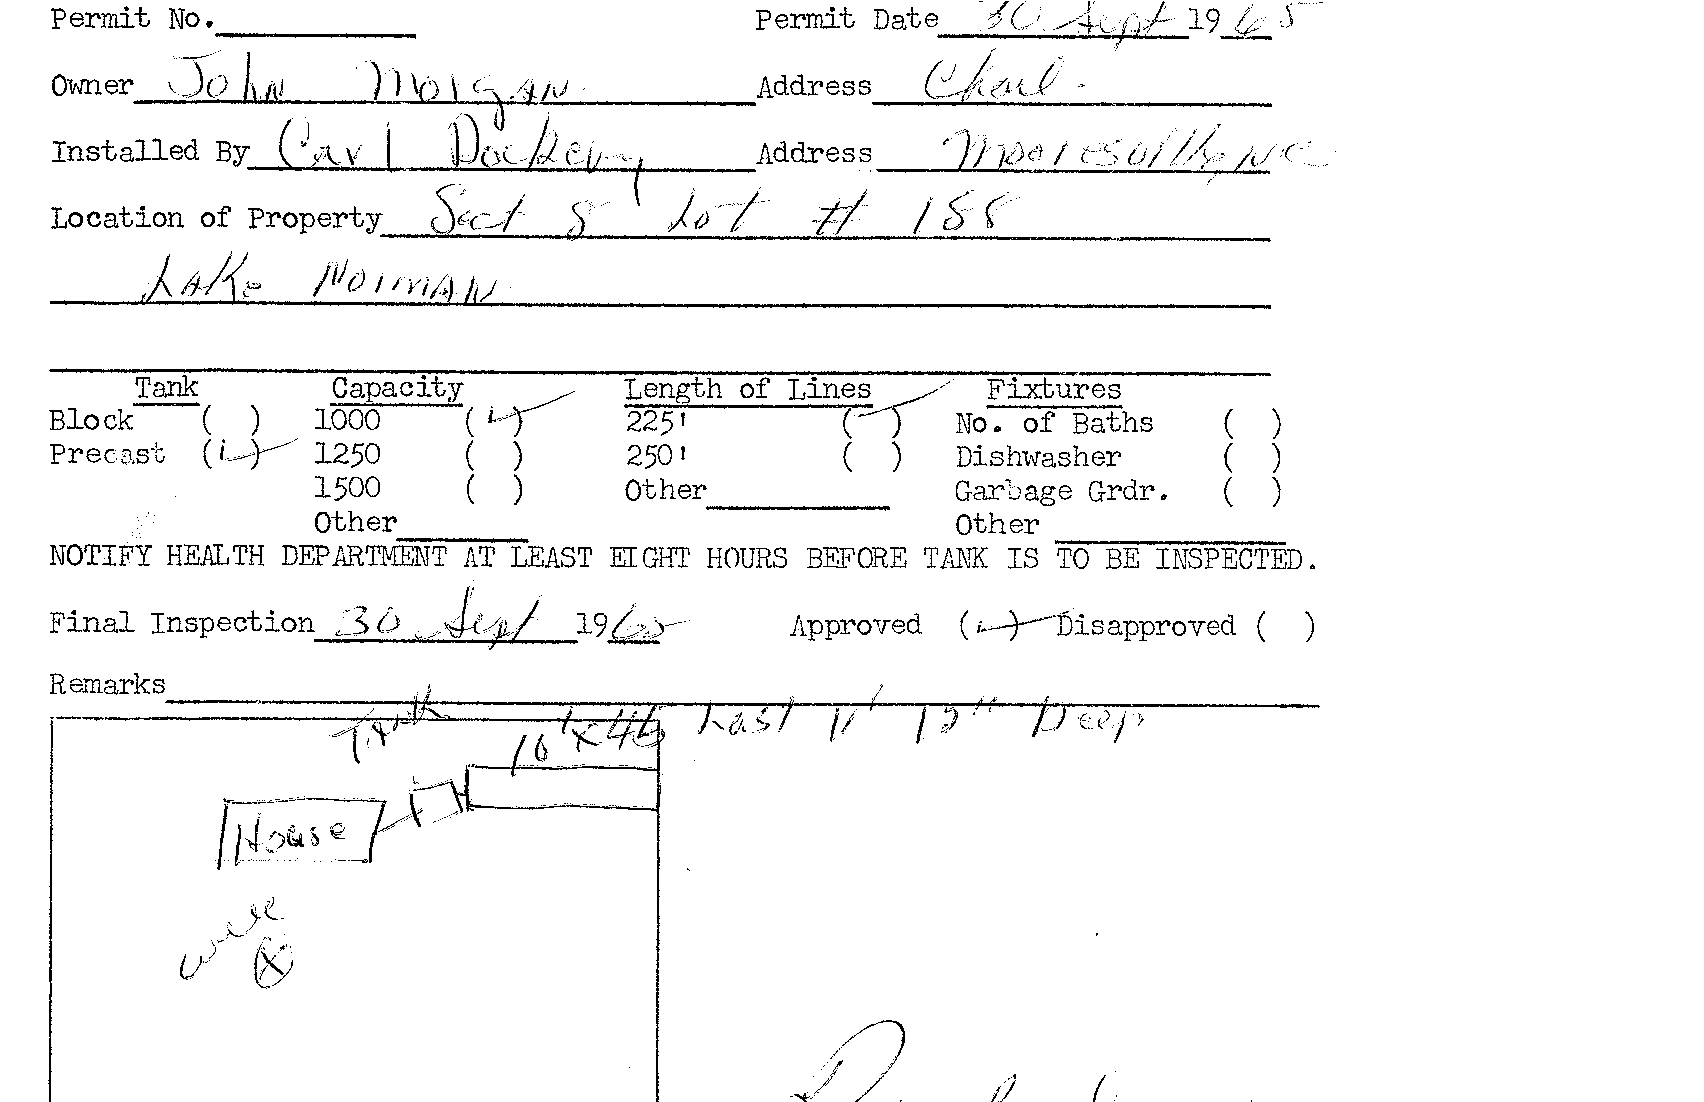 Permit No. Permit Date 30 Sept 1965
Owner John Morgan Address Charl.
Installed By Carl Dockery Address Mooresville, NC
Location of Property Sect 8 Lot # 188
Lake Norman
Tank Capacity Length of Lines Fixtures
Block ( ) 1000 (✓) 225' (✓) No. of Baths ( )
Precast (✓) 1250 ( ) 250' ( ) Dishwasher ( )
1500 ( ) Other Garbage Grdr. ( )
Other Other
NOTIFY HEALTH DEPARTMENT AT LEAST EIGHT HOURS BEFORE TANK IS TO BE INSPECTED.
Final Inspection 30 Sept 1965 Approved (✓) Disapproved ( )
Remarks
Tank 10' x 46 Last 11' 12" Deep
House
well